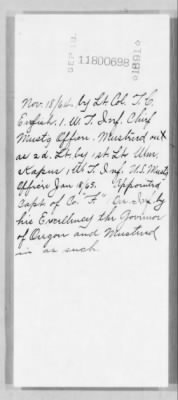 SEP 18.
11800698
1891
Nov. 18/64. by Lt Col. T. C.
English. 1. W. T. Inf. Chief
Mustg Officer. Mustered out
as 2d. Lt. by 1st. Lt. Wm.
Kapus 1. W. T. Inf. U.S. Mustg
Officer Jan 18/65. Appointed
Capt of Co. "F" Or. Inf by
his Excellency the Govinor
of Oregon and Mustered
in as such